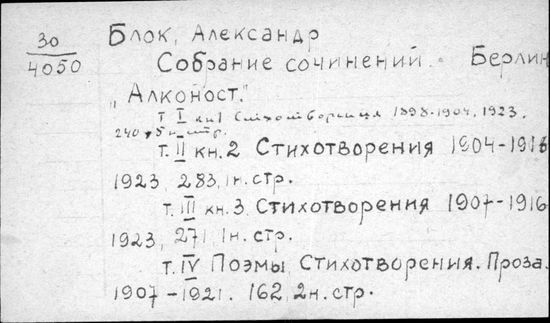 30
4050
Блок, Александр
Собрание сочинений. Берлин
"Алконост."
т. I кн 1 Стихотворения 1898-1904, 1923.
240, 5 н. стр.
т. II кн. 2 Стихотворения 1904-1916
1923, 283, 1н. стр.
т. III кн. 3 Стихотворения 1907-1916
1923, 271, 1н. стр.
т. IV Поэмы, Стихотворения. Проза.
1907-1921. 162, 2н. стр.